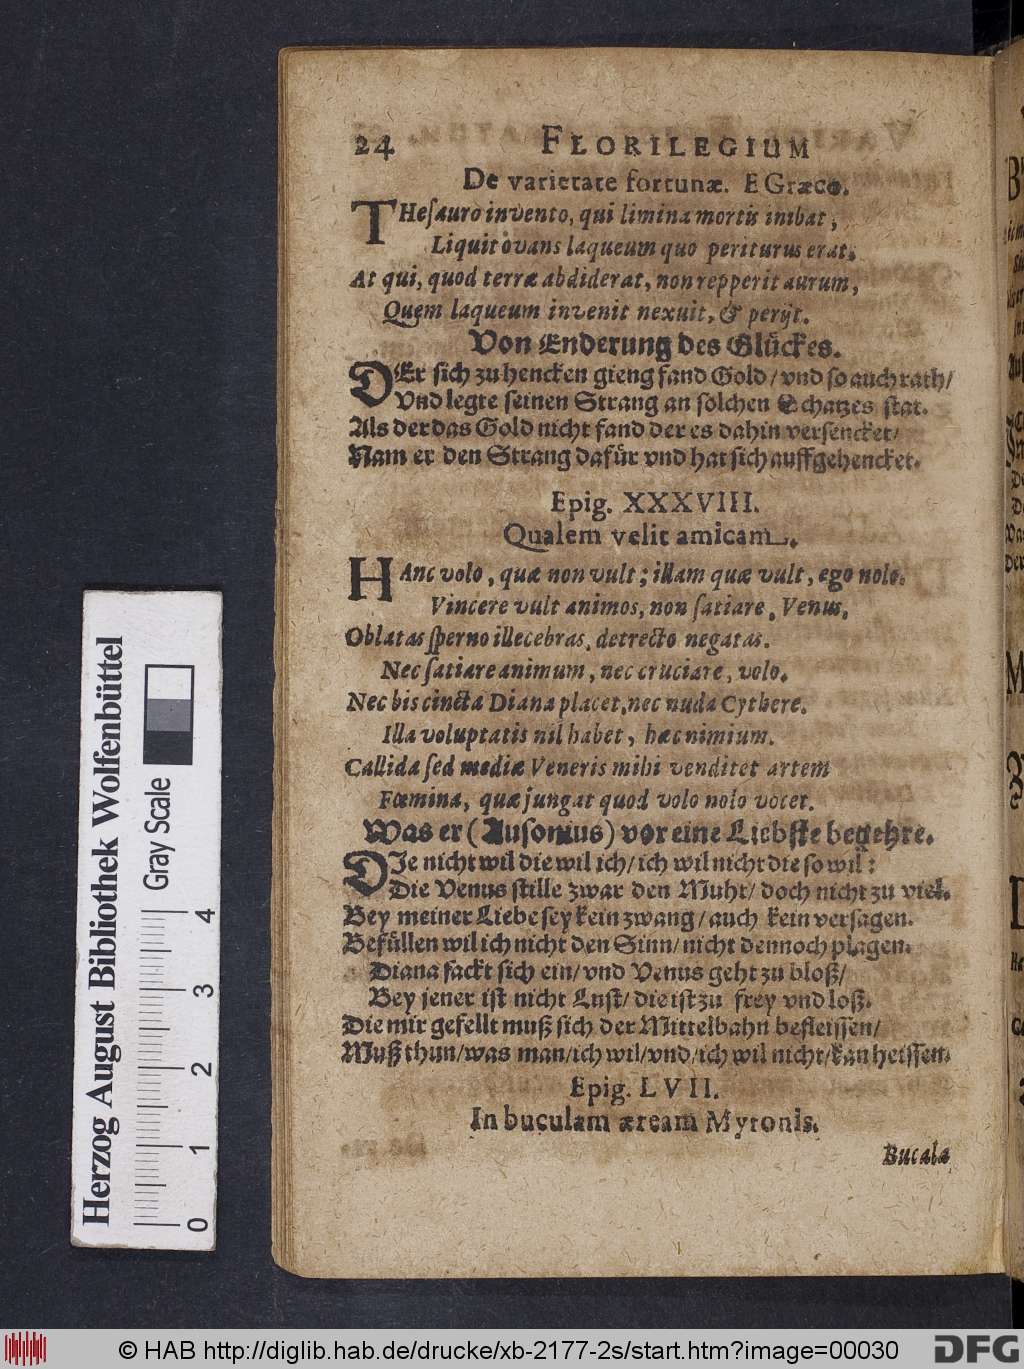 24 FLORILEGIUM
De varietate fortunæ. E Græco.
THeſauro invento, qui limina mortis inibat,
Liquit ovans laqueum quo periturus erat.
At qui, quod terræ abdiderat, non repperit aurum,
Quem laqueum invenit nexuit, & perijt.
Von Enderung des Glückes.
DEr sich zu hencken gieng fand Gold/ vnd so auch rath/
Vnd legte seinen Strang an solchen Schatzes stat.
Als der das Gold nicht fand der es dahin versencket/
Nam er den Strang dafür vnd hat sich auffgehencket.
Epig. XXXVIII.
Qualem velit amicam.
HAnc volo, quæ non vult; illam quæ vult, ego nolo.
Vincere vult animos, non ſatiare, Venus.
Oblatas ſperno illecebras, detrecto negatas.
Nec ſatiare animum, nec cruciare, volo.
Nec bis cincta Diana placet, nec nuda Cythere.
Illa voluptatis nil habet, hæc nimium.
Callida ſed mediæ Veneris mihi venditet artem
Fœmina, quæ jungat quod volo nolo vocet.
Was er (Ausonius) vor eine Liebste begehre.
DIe nicht wil die wil ich/ ich wil nicht die so wil:
Die Venus stille zwar den Muht/ doch nicht zu viel.
Bey meiner Liebe sey kein zwang/ auch kein versagen.
Befüllen wil ich nicht den Sinn/ nicht dennoch plagen.
Diana fackt sich ein/ vnd Venus geht zu bloß/
Bey jener ist nicht Lust/ die ist zu frey vnd loß.
Die mir gefellt muß sich der Mittelbahn befleissen/
Muß thun/ was man/ ich wil/ vnd/ ich wil nicht/ kan heissen.
Epig. LVII.
In buculam æream Myronis.
Bucula
Herzog August Bibliothek Wolfenbüttel
Gray Scale
0 1 2 3 4
© HAB http://diglib.hab.de/drucke/xb-2177-2s/start.htm?image=00030
DFG